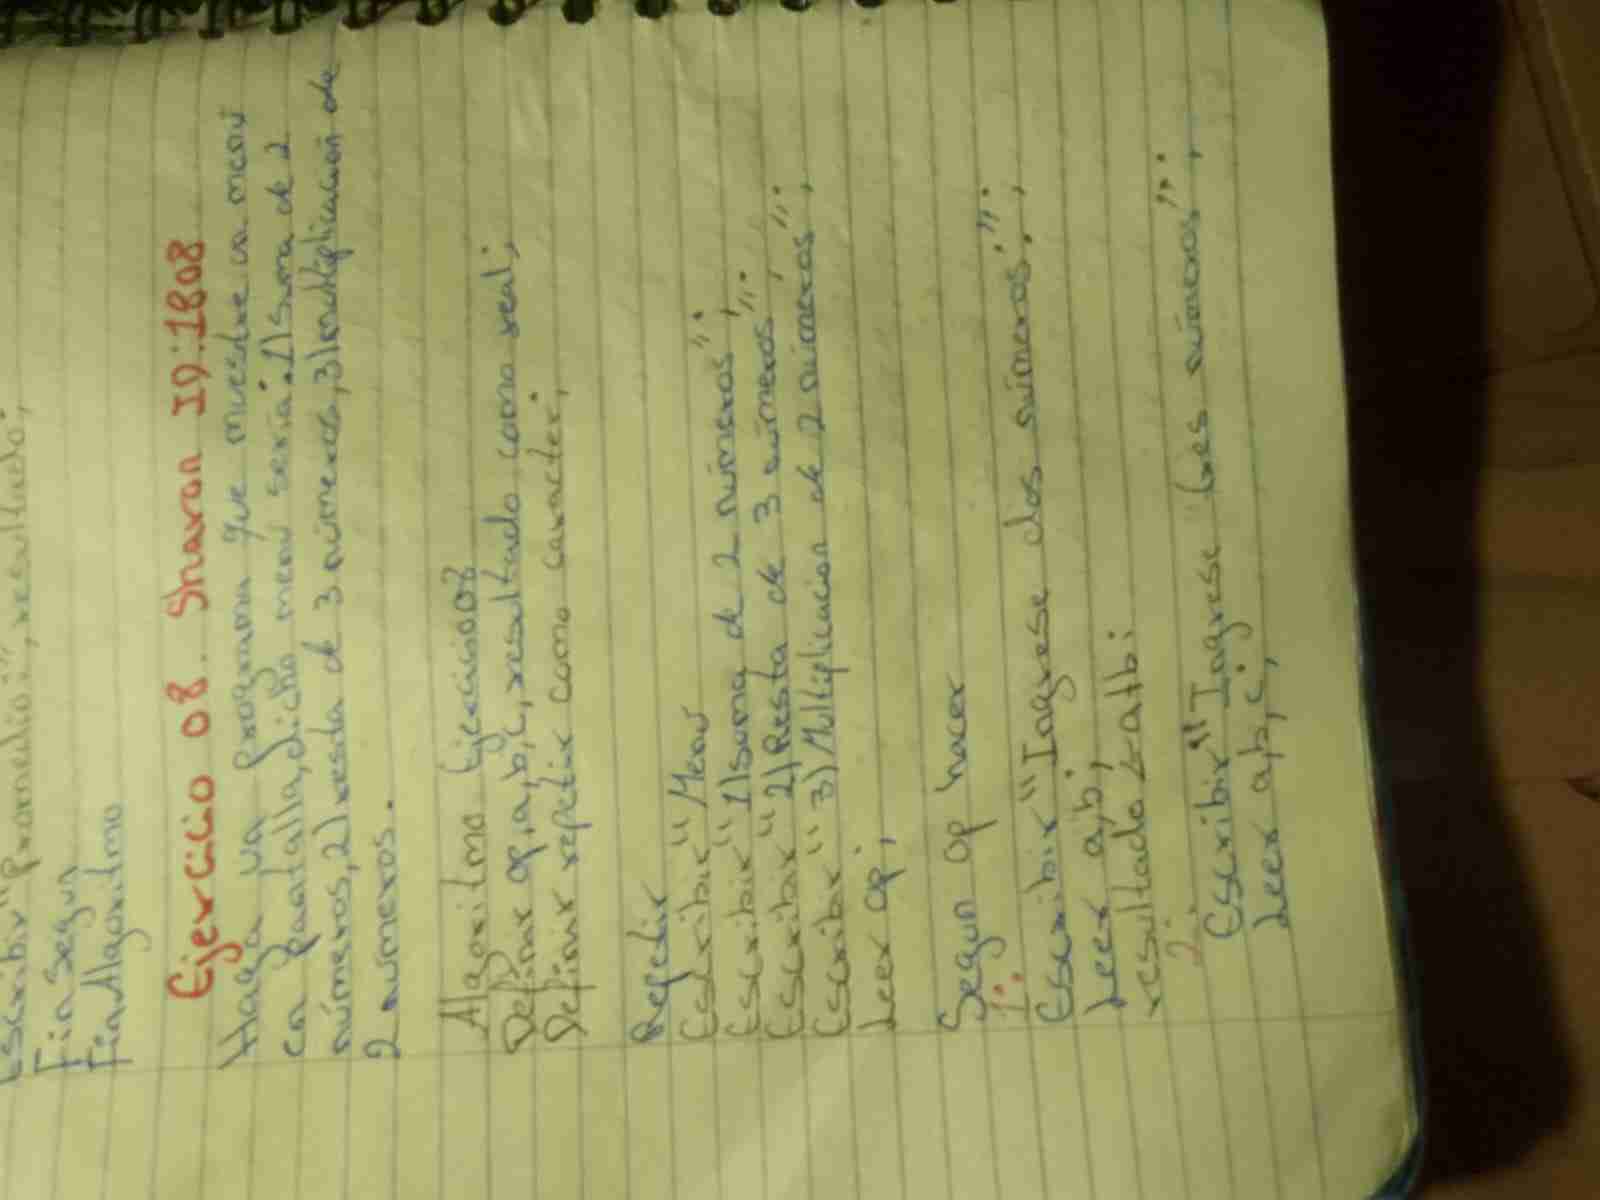 Escribir "promedio:", resultado;
Fin segun
FinAlgoritmo
Ejercicio 08. Sharon ID:1808
Haga un programa que muestre un menú
en pantalla, dicho menu seria: 1) Suma de 2
números, 2) resta de 3 números, 3) multiplicación de
2 numeros.
Algoritmo Ejercicio08
Definir op, a, b, c, resultado como real;
Definir repetir como caracter;
Repetir
Escribir "Menu";
Escribir "1) Suma de 2 números";
Escribir "2) Resta de 3 números";
Escribir "3) Multiplicacion de 2 números";
Leer op;
Segun op hacer
1:
Escribir "Ingrese dos números:";
Leer a, b;
resultado <- a+b;
2:
Escribir "Ingrese tres números";
Leer a, b, c;